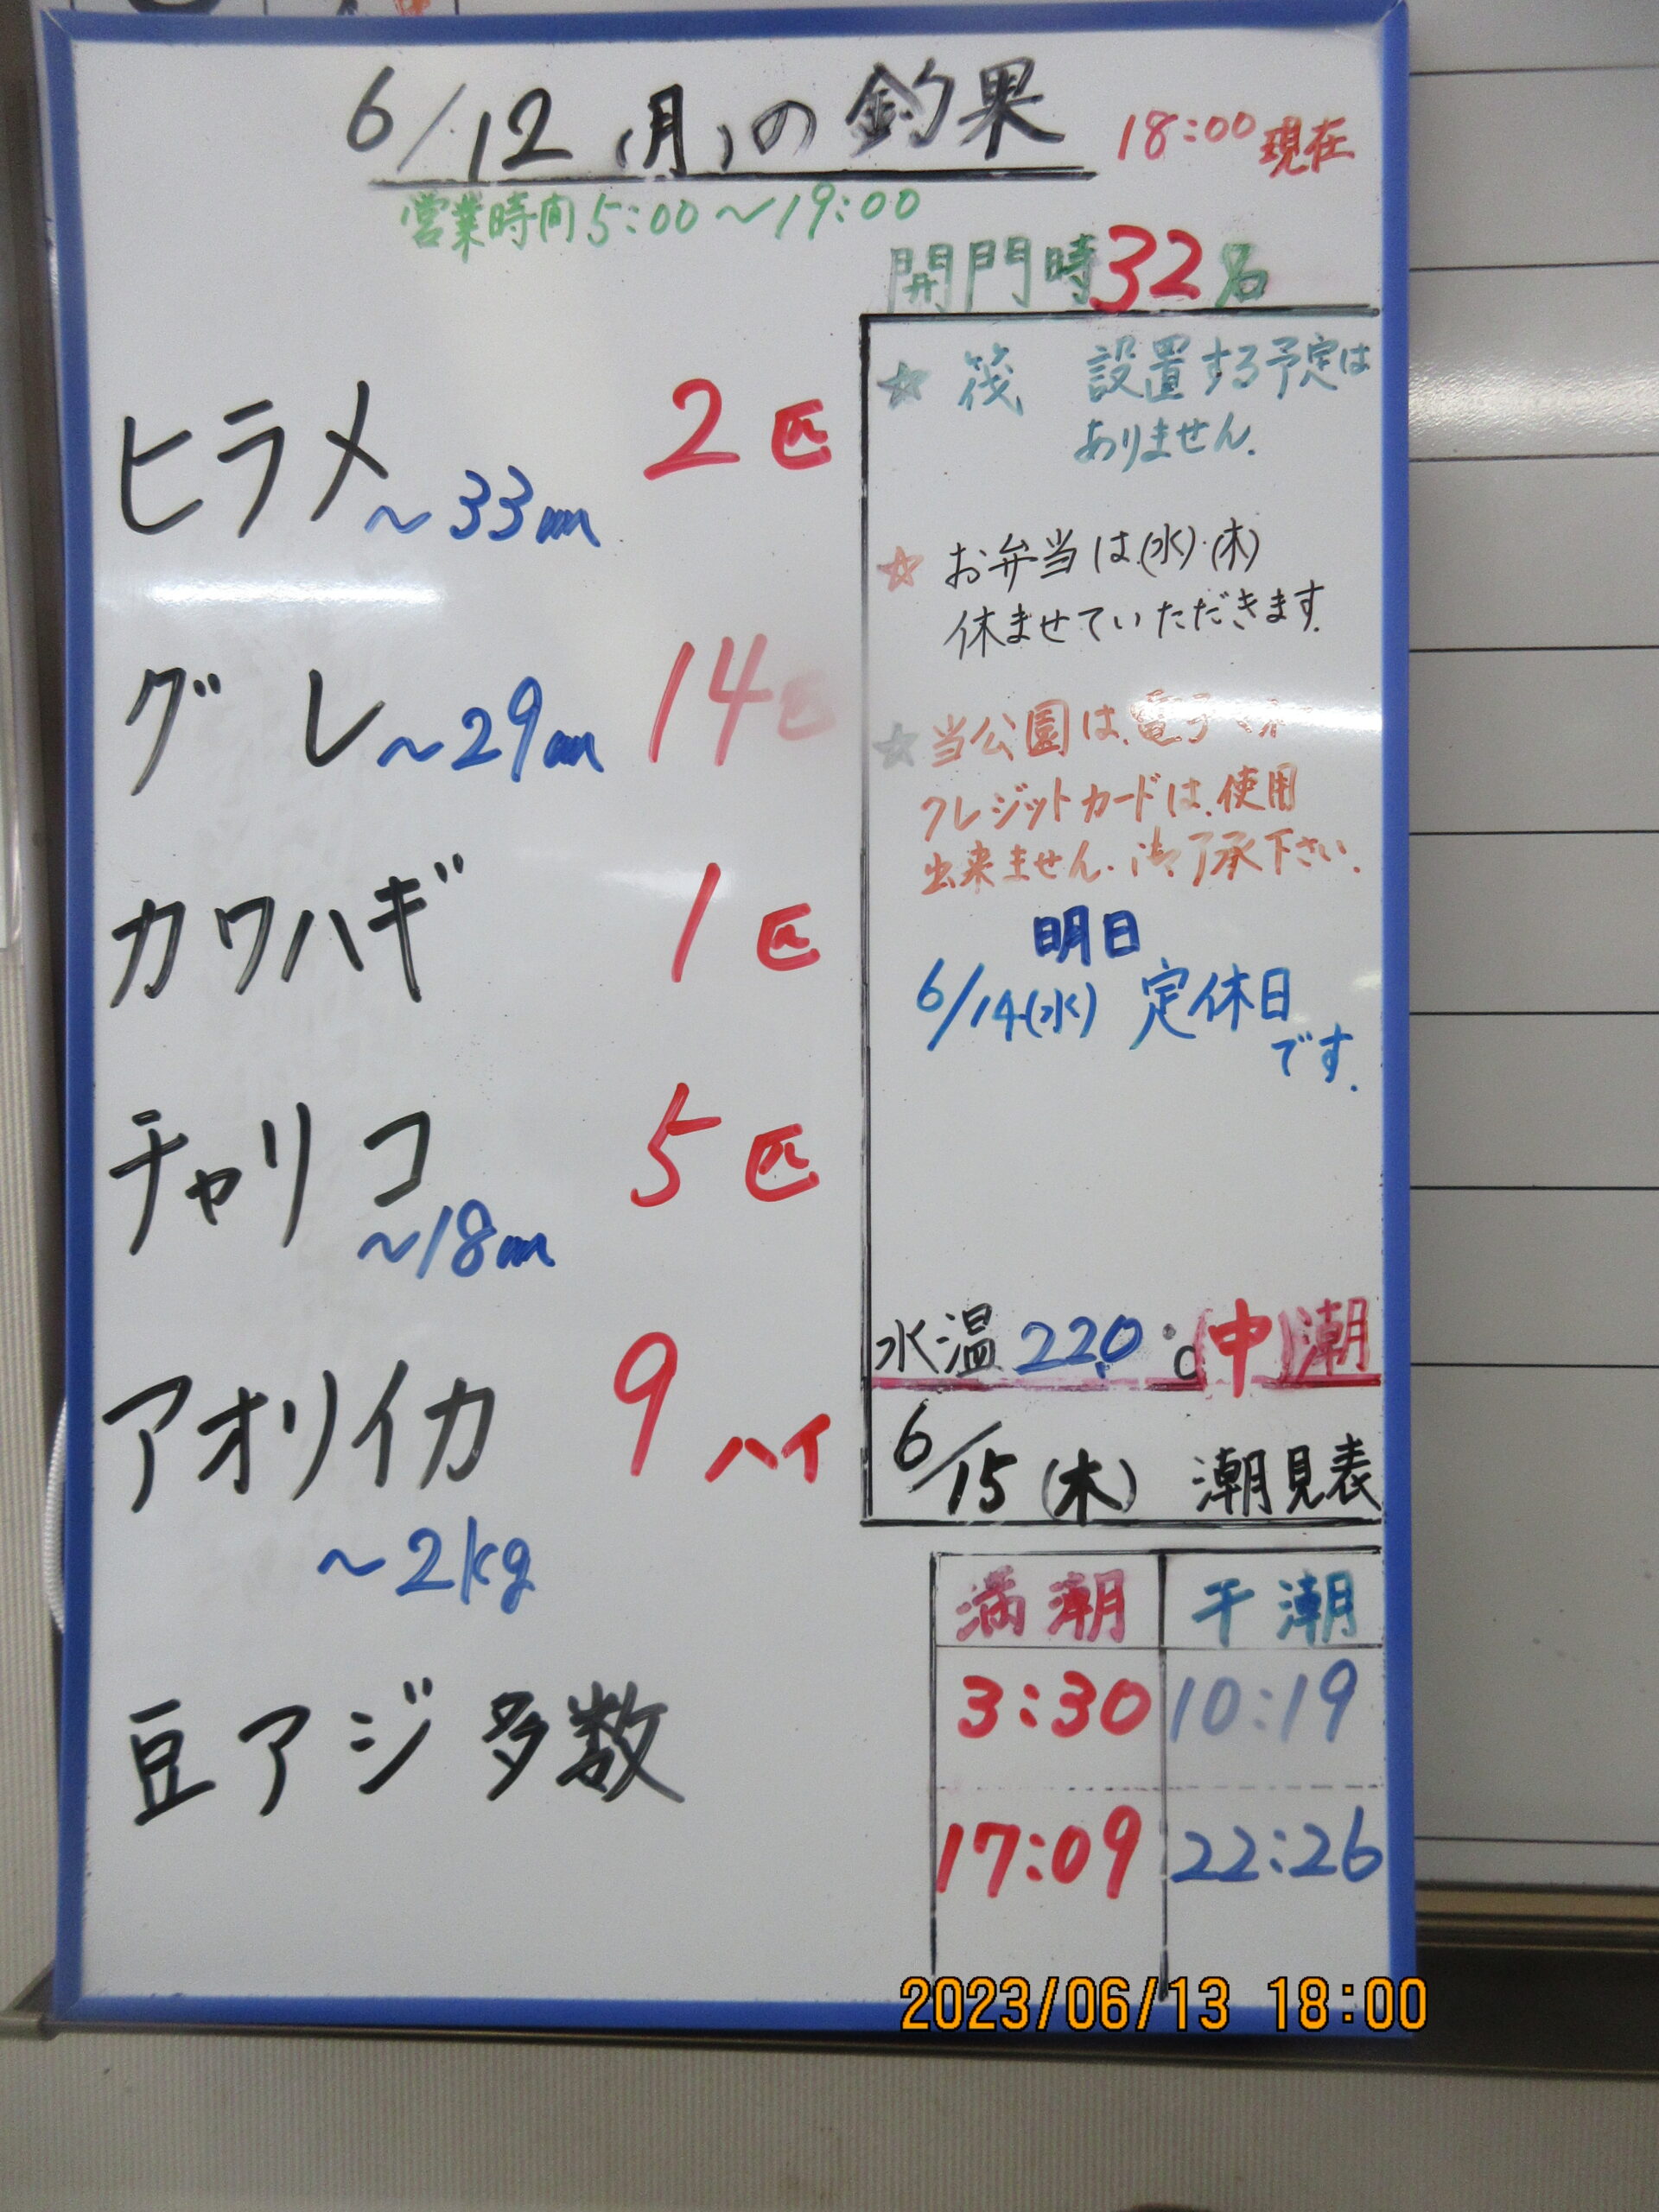 6/12(月)の釣果
18:00現在
営業時間5:00～19:00
開門時32名
ヒラメ～33cm 2匹
グレ～29cm 14匹
カワハギ 1匹
チャリコ 5匹
～18cm
アオリイカ 9ハイ
～2kg
豆アジ多数
☆筏 設置する予定は
ありません.
☆お弁当は(水)・(木)
休ませていただきます.
☆当公園は、電子
クレジットカードは、使用
出来ません.御了承下さい.
明日
6/14(水)定休日
です.
水温22.0℃(中)潮
6/15(木) 潮見表
満潮 干潮
3:30 10:19
17:09 22:26
2023/06/13 18:00